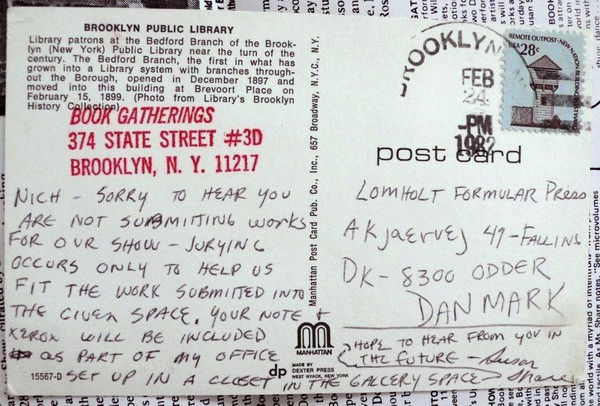 BROOKLYN PUBLIC LIBRARY
Library patrons at the Bedford Branch of the Brook-
lyn (New York) Public Library near the turn of the
century. The Bedford Branch, the first in what has
grown into a Library system with branches through-
out the Borough, opened in December 1897 and
moved into this building at Brevoort Place on
February 15, 1899. (Photo from Library's Brooklyn
History Collection)
BOOK GATHERINGS
374 STATE STREET #3D
BROOKLYN, N. Y. 11217
NICH - SORRY TO HEAR YOU
ARE NOT SUBMITTING WORKS
FOR OUR SHOW - JURYING
OCCURS ONLY TO HELP US
FIT THE WORK SUBMITTED INTO
THE GIVEN SPACE. YOUR NOTE +
XEROX WILL BE INCLUDED
AS PART OF MY OFFICE
SET UP IN A CLOSET IN THE GALLERY SPACE
HOPE TO HEAR FROM YOU IN
THE FUTURE - Susan
Share
15567-D
Manhattan Post Card Pub. Co., Inc., 657 Broadway, N.Y.C., N.Y.
MANHATTAN
dp
MADE BY
DEXTER PRESS
WEST NYACK, NEW YORK
BROOKLYN
FEB
24
-PM
1982
REMOTE OUTPOST·NEW NATION
USA 28c
post card
LOMHOLT FORMULAR PRESS
AKJAERVEJ 49 - FALLING
DK - 8300 ODDER
DANMARK